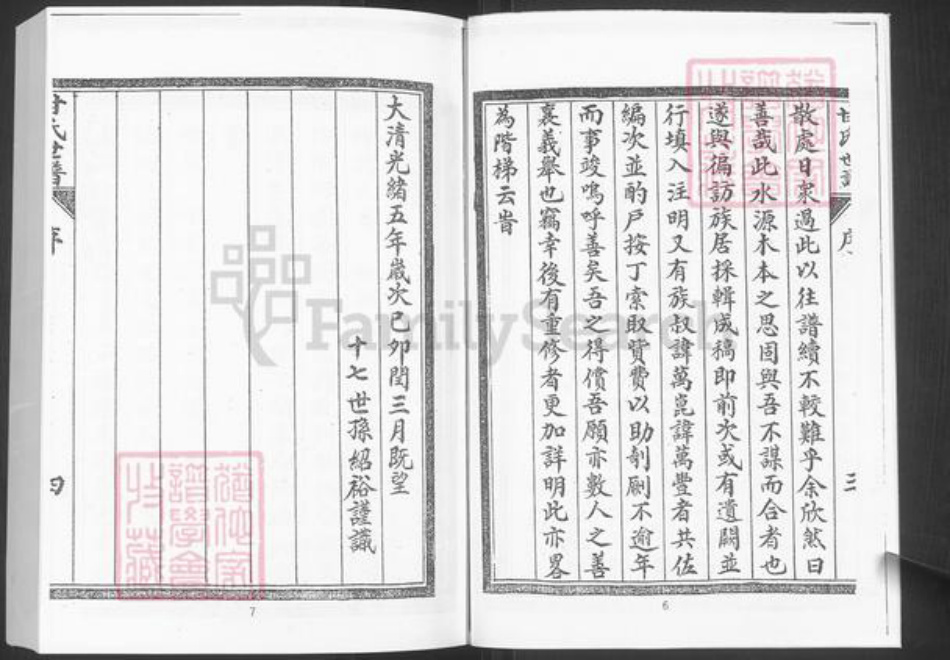 甘氏世譜
序
三
散處日衆過此以往譜續不較難乎余欣然曰
善哉此水源木本之思固與吾不謀而合者也
遂與徧訪族居採輯成稿即前次或有遺闕並
行填入注明又有族叔諱萬崑諱萬豐者共佐
編次並酌戶按丁索取貲費以助剞劂不逾年
而事竣嗚呼善矣吾之得償吾願亦數人之善
襄義舉也竊幸後有重修者更加詳明此亦畧
為階梯云旹
6
大清光緒五年歲次己卯閏三月既望
十七世孫紹裕謹識
氏世譜
序
四
7
FamilySearch